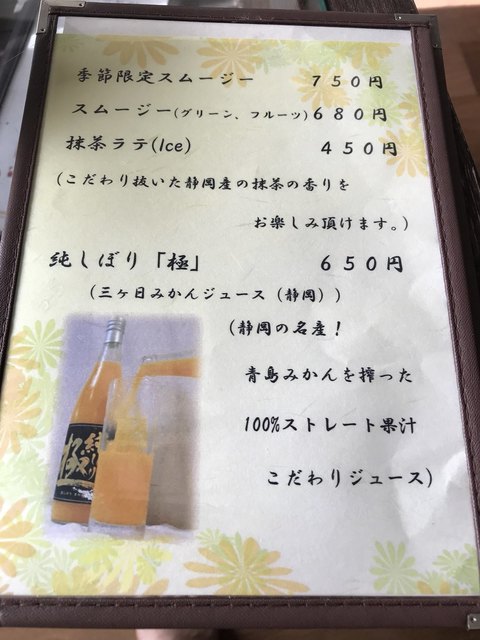 季節限定スムージー 750円
スムージー(グリーン、フルーツ) 680円
抹茶ラテ(Ice) 450円
(こだわり抜いた静岡産の抹茶の香りを
お楽しみ頂けます。)
純しぼり「極」 650円
(三ヶ日みかんジュース(静岡))
(静岡の名産!
青島みかんを搾った
100%ストレート果汁
こだわりジュース)